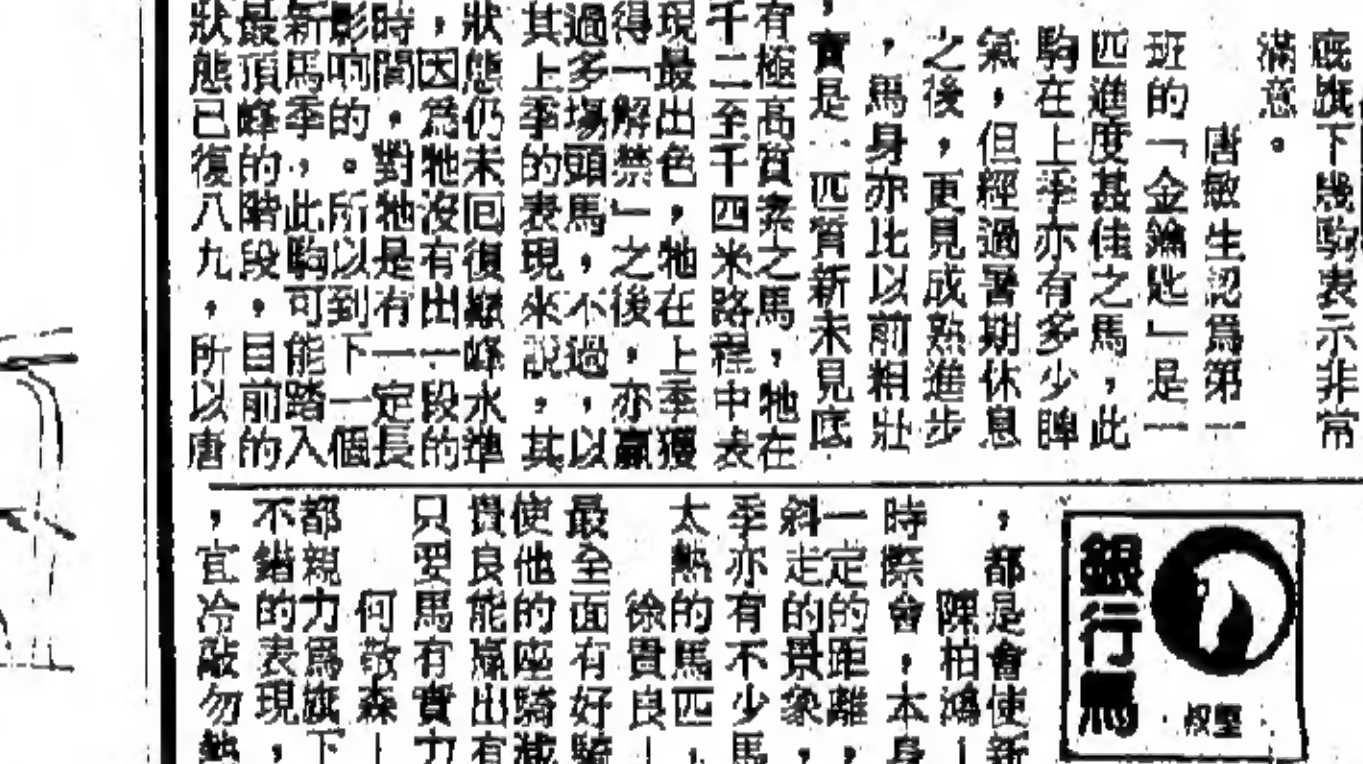 廐旗下幾駒表示非常
滿意。
唐敏生認爲第一
班的「金鑰匙」是一
匹進度甚佳之馬，此
駒在上季亦有多少脾
氣，但經過暑期休息
之後，更見成熟進步
，馬身亦比以前粗壯
，實是一匹質新未見底
有極高質素之馬，牠在
千二至千四米路程中表
現最出色，牠在上季獲
得「解禁」之後，亦贏
過多塲頭馬，不過，以
其上季的表現來說，其
狀態仍未回復巔峰水準
，因爲牠沒有出一段的
時間，對牠是有一定長
影响的。所以到下一個
新馬季，此駒可能踏入
最頂峰的階段，目前的
狀態已復八九，所以唐
銀行馬
叔堅
，都是會使新
陳柏鴻｜
時際會，本身
一定的距離，
斜走的景象，
季亦有不少馬
太熱的馬匹，
徐貴良｜
最全面有好騎
使他的座騎減
貴良能贏出有
只要馬有實力
何敬森｜
都親力爲旗下
不錯的表現，
，宜冷敲勿熱